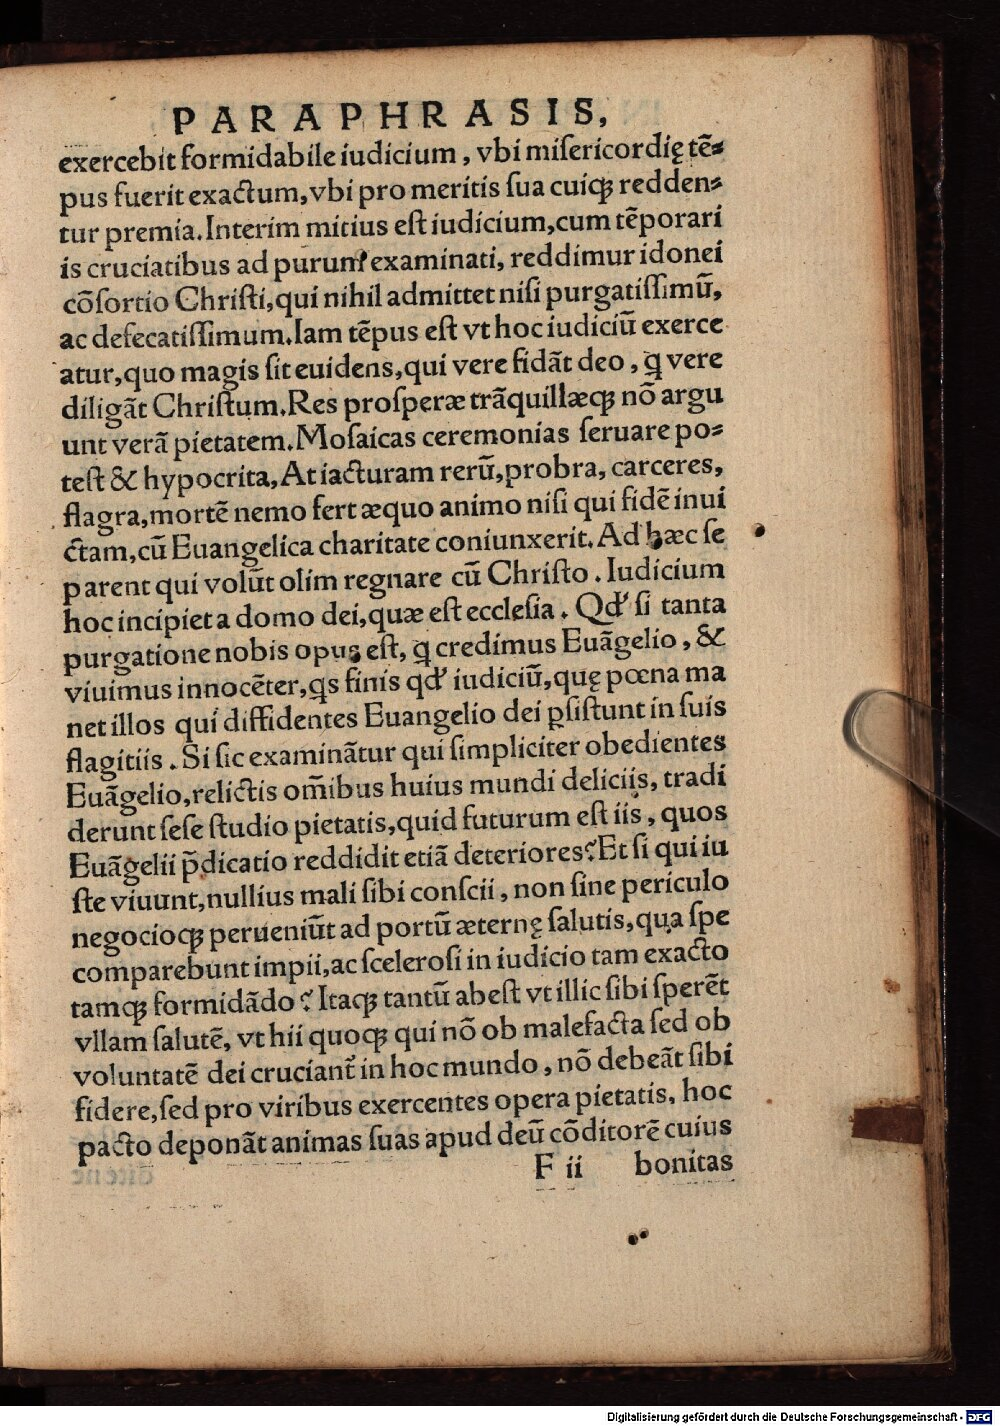 PARAPHRASIS,
exercebit formidabile iudicium, vbi miſericordię tē⸗
pus fuerit exactum, vbi pro meritis ſua cuiqꝫ redden⸗
tur premia. Interim mitius eſt iudicium, cum tēporari
is cruciatibus ad purum examinati, reddimur idonei
cōſortio Chriſti, qui nihil admittet niſi purgatiſſimū,
ac defecatiſſimum. Iam tēpus eſt vt hoc iudiciū exerce
atur, quo magis ſit euidens, qui vere fidāt deo, q̄ vere
diligāt Chriſtum. Res proſperæ trāquillæqꝫ nō argu
unt verā pietatem. Moſaicas ceremonias ſeruare po⸗
teſt & hypocrita, At iacturam rerū, probra, carceres,
flagra, mortē nemo fert æquo animo niſi qui fidē inui
ctam, cū Euangelica charitate coniunxerit. Ad hæc ſe
parent qui volūt olim regnare cū Chriſto. Iudicium
hoc incipiet a domo dei, quæ eſt eccleſia. Qđ ſi tanta
purgatione nobis opus eſt, q̄ credimus Euāgelio, &
viuimus innocēter, q̄s finis qđ iudiciū, quę pœna ma
net illos qui diffidentes Euangelio dei ꝑſiſtunt in ſuis
flagitiis. Si ſic examināntur qui ſimpliciter obedientes
Euāgelio, relictis om̄ibus huius mundi deliciis, tradi
derunt ſeſe ſtudio pietatis, quid futurum eſt iis, quos
Euāgelii p̄dicatio reddidit etiā deteriores? Et ſi qui iu
ſte viuunt, nullius mali ſibi conſcii, non ſine periculo
negocioqꝫ perueniūt ad portū æternę ſalutis, qua ſpe
comparebunt impii, ac ſceleroſi in iudicio tam exacto
tamqꝫ formidādo? Itaqꝫ tantū abeſt vt illic ſibi ſperēt
vllam ſalutē, vt hii quoqꝫ qui nō ob malefacta ſed ob
voluntatē dei cruciant̄ in hoc mundo, nō debeāt ſibi
fidere, ſed pro viribus exercentes opera pietatis, hoc
pacto deponāt animas ſuas apud deū cōditorē cuius
F ii bonitas
Digitalisierung gefördert durch die Deutsche Forschungsgemeinschaft - DFG